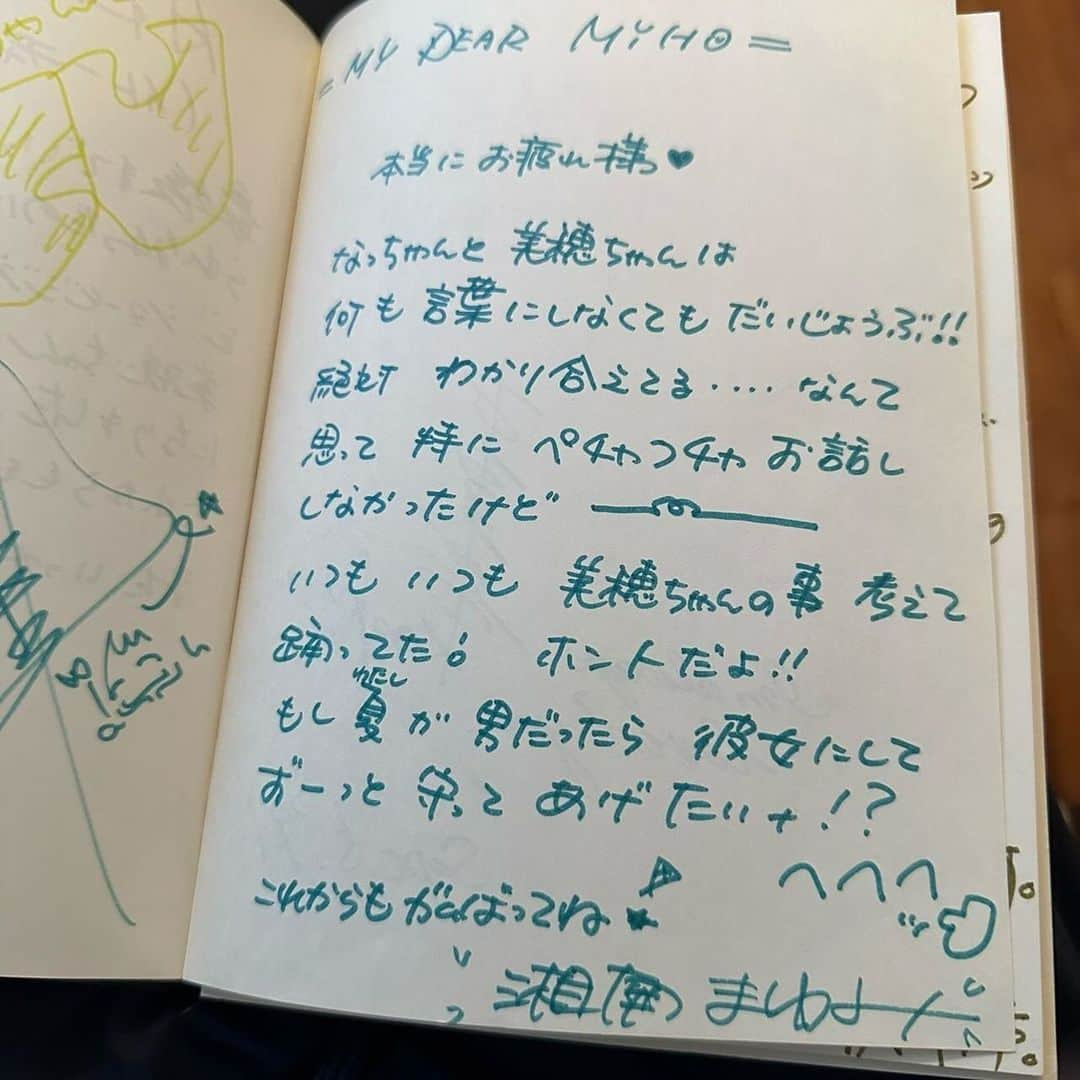 = MY DEAR MYHO =
本当にお疲れ様っ♥
なっちゃんと 美穂ちゃんは
何も言葉にしなくてもだいじょうぶ!!
絶対 わかり合えてる....なんて
思って 特に ペチャクチャ お話し
しなかったけど
いつも いつも 美穂ちゃんの事 考えて
踊ってた! ホントだよ!!
わたし
もし 夏が 男だったら 彼女にして
ずーっと 守って あげたいナ!?
へへへ
これからも がんばってね